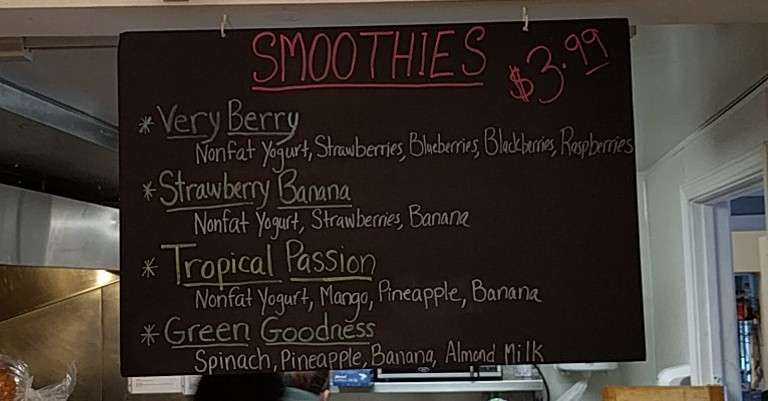 SMOOTHIES $3.99
* Very Berry
Nonfat Yogurt, Strawberries, Blueberries, Blackberries, Raspberries
* Strawberry Banana
Nonfat Yogurt, Strawberries, Banana
* Tropical Passion
Nonfat Yogurt, Mango, Pineapple, Banana
* Green Goodness
Spinach, Pineapple, Banana, Almond Milk